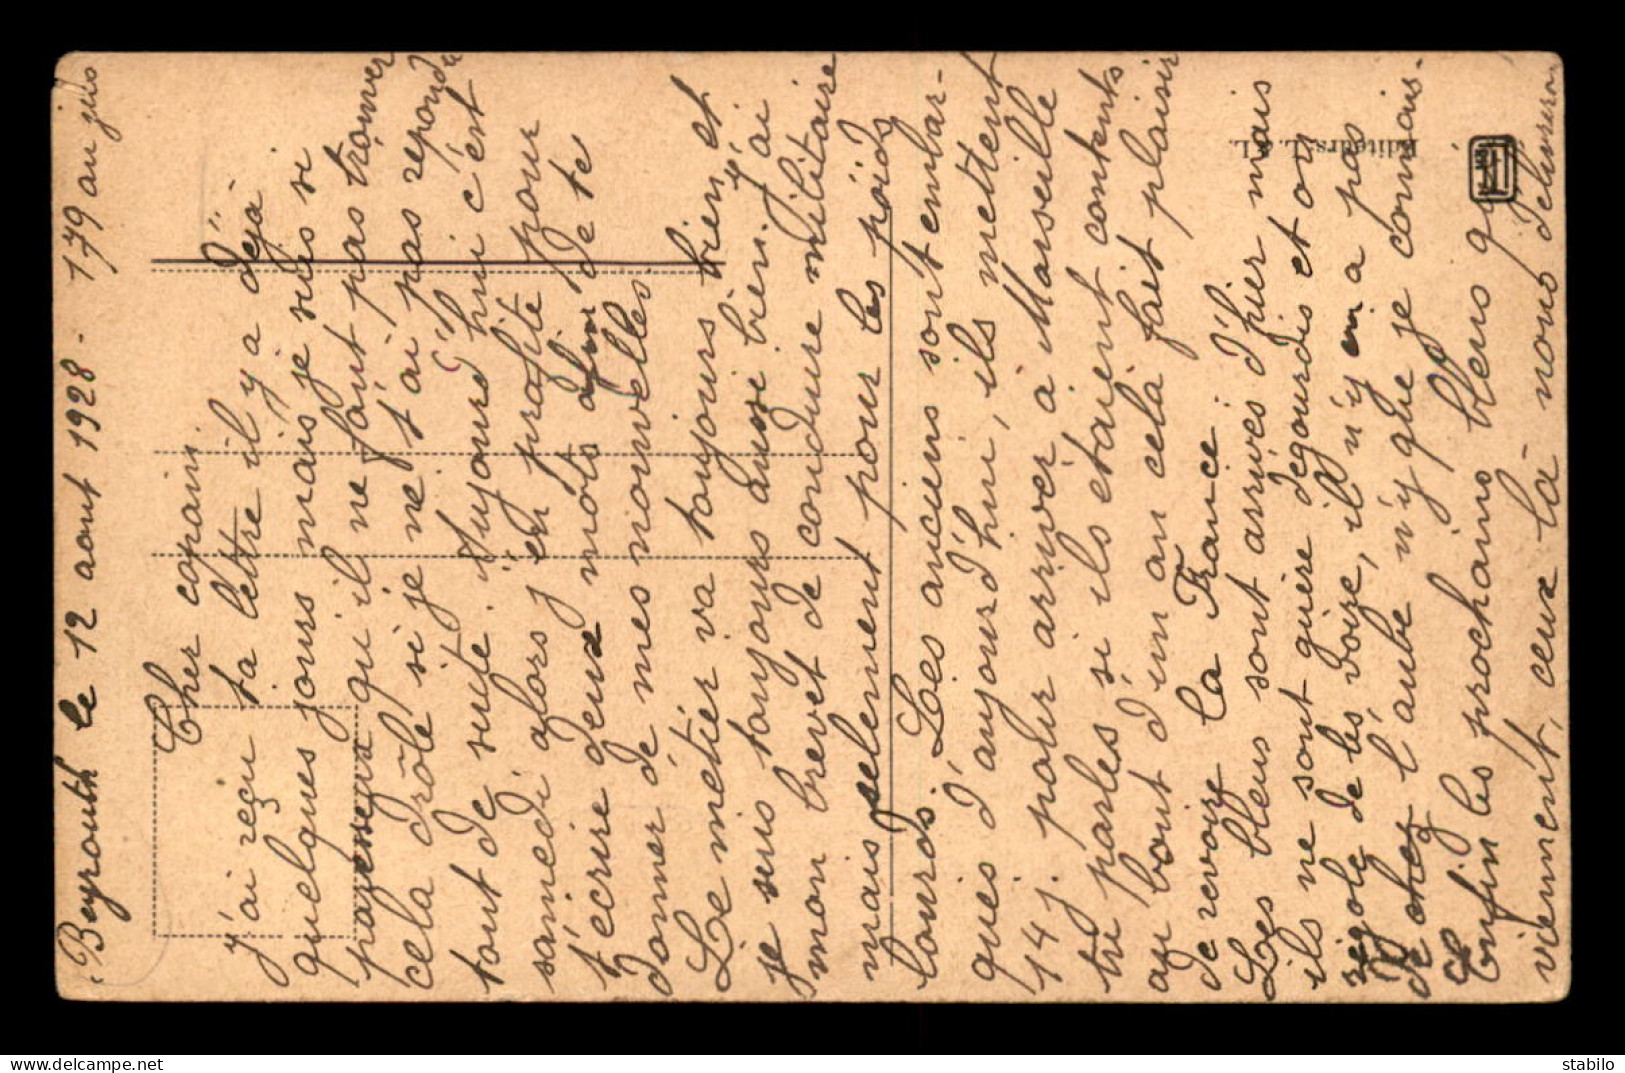 Beyrouth le 12 aout 1928 - 179 au jus
Cher copain.
j'ai reçu ta lettre il y a déjà
quelques jours mais je suis si
paresseux qu'il ne faut pas trouver
cela drôle si je ne t'ai pas repondu
tout de suite. Aujourd'hui c'est
samedi alors j'en profite pour
t'ecrire deux mots afin de te
donner de mes nouvelles.
Le métier va toujours bien et
je suis toujours aussi bien. j'ai
mon brevet de conduire militaire
mais selement pour les poids
lourds. Les anciens sont embar-
qués d'aujourd'hui, ils mettent
14 j. pour arriver à Marseille
tu parles si ils étaient contents
au bout d'un an cela fait plaisir
de revoire la France.
Les bleus sont arrivés d'hier mais
ils ne sont guère dégourdis et on
rigole de les voire, il n'y en a pas
de chez l'aube n'y que je connais-
Enfin les prochains bleus qui
viennent, ceux là nous délivreron
Editeurs, L.